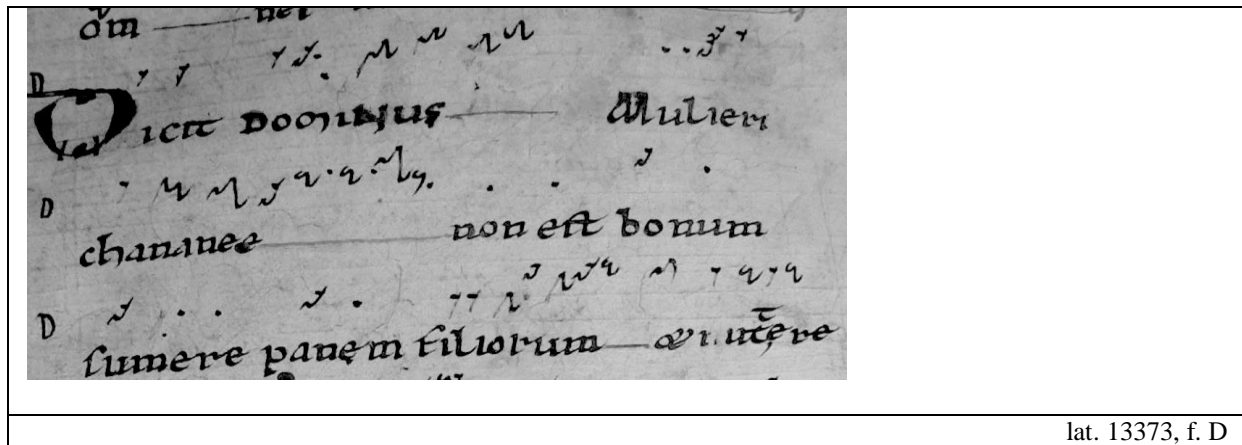 om
D
Dicit DOMINUS Mulieri
D
chananee non est bonum
D
sumere panem filiorum
lat. 13373, f. D